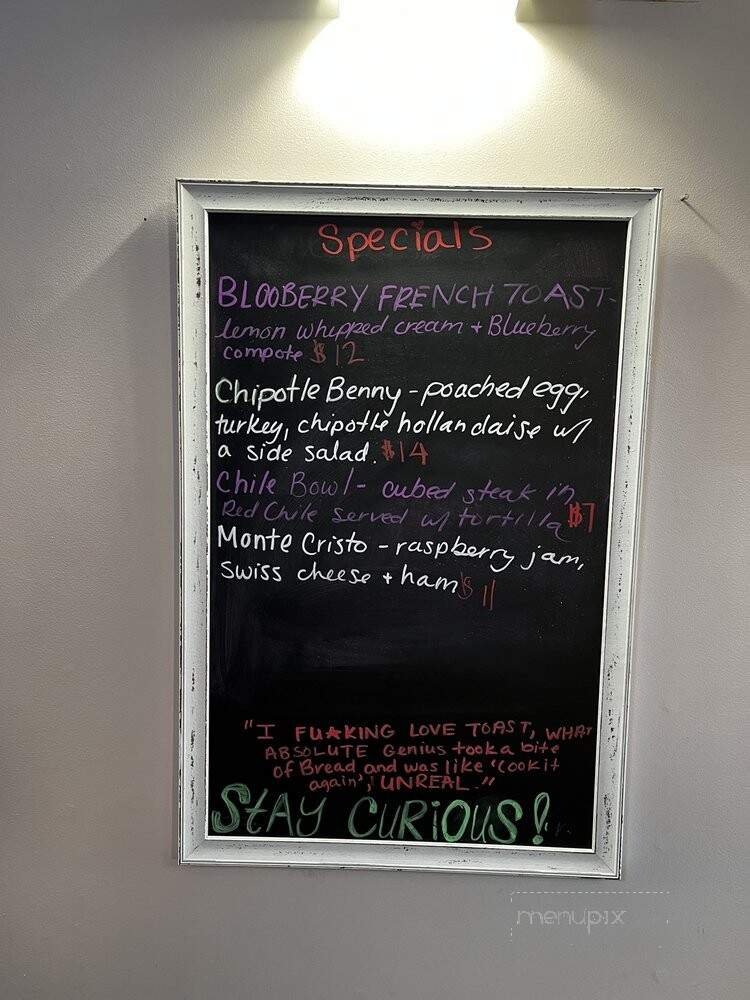 Specials
BLOOBERRY FRENCH TOAST-
lemon whipped cream + Blueberry
compote $12
Chipotle Benny - poached egg,
turkey, chipotle hollandaise w/
a side salad. $14
Chile Bowl - cubed steak in
Red Chile served w/ tortilla $7
Monte Cristo - raspberry jam,
Swiss cheese + ham $11
"I FU★KING LOVE TOAST, WHAT
ABSOLUTE Genius took a bite
of Bread and was like 'cook it
again', UNREAL."
StAY CURiOUS!
menupix